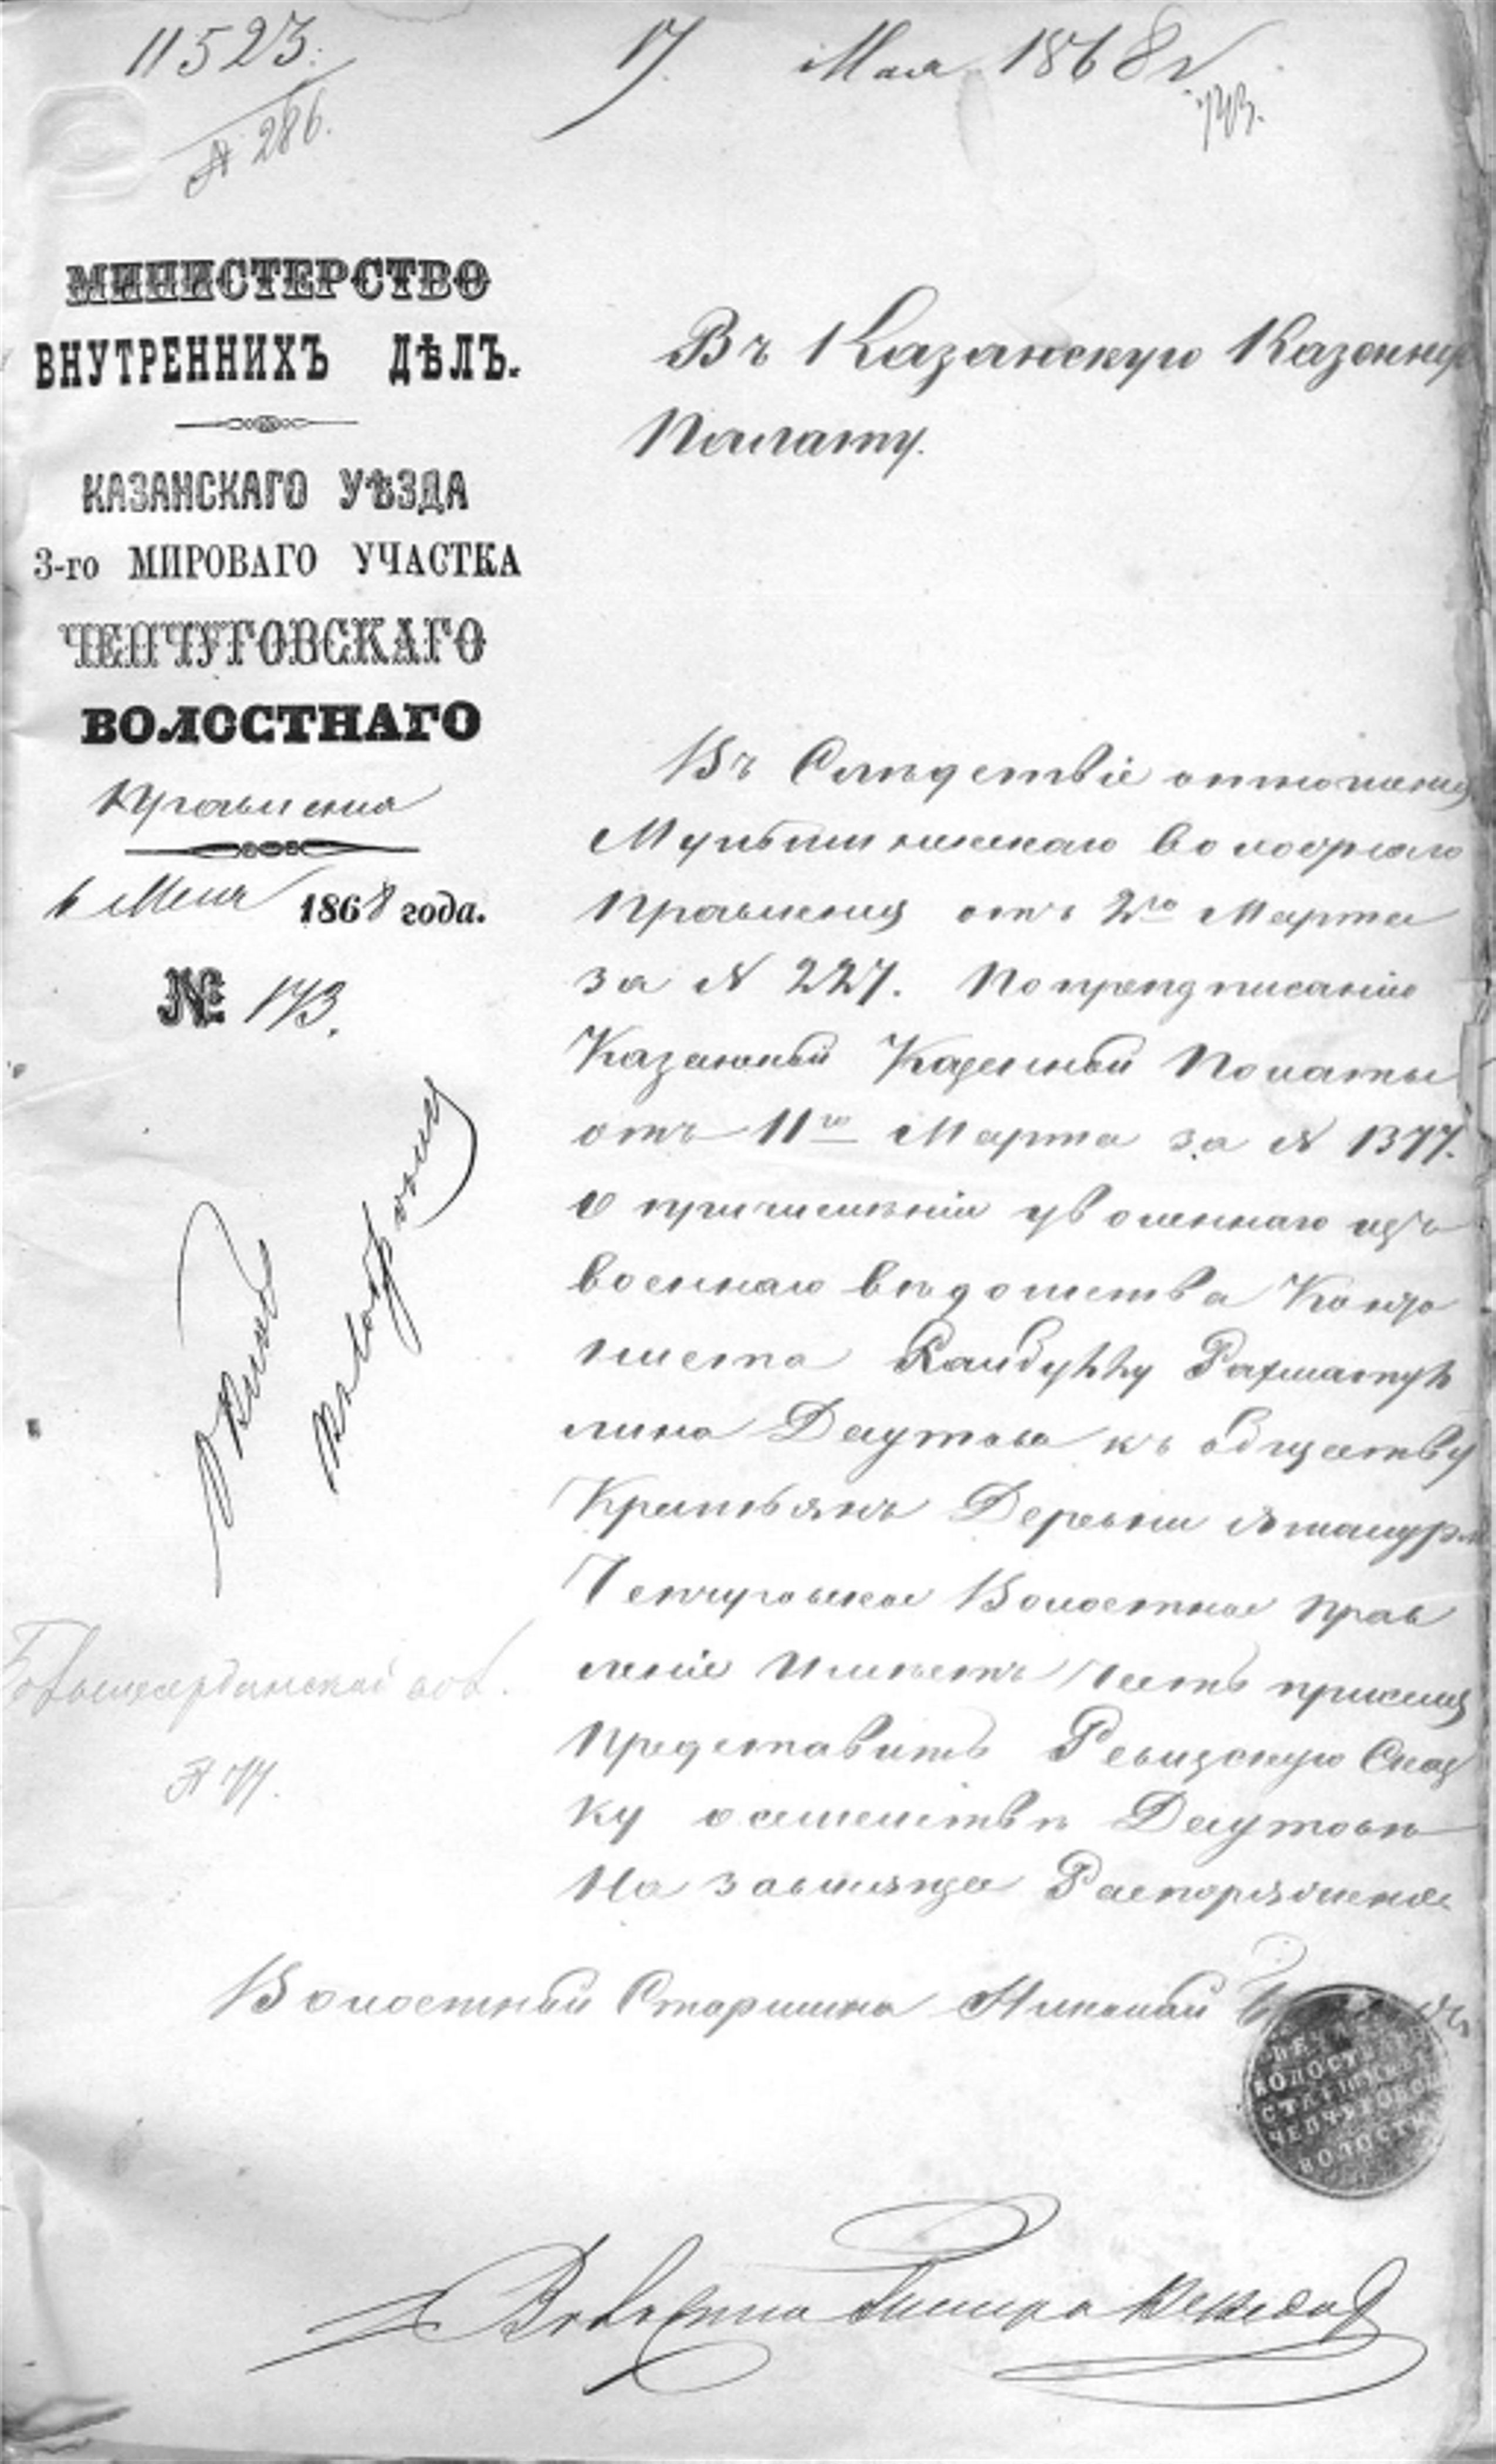 11523.
17. Мая 1868 г
№ 286.
173.
МИНИСТЕРСТВО
ВНУТРЕННИХЪ ДѢЛЪ.
КАЗАНСКАГО УѢЗДА
3-го МИРОВАГО УЧАСТКА
ЧЕПЧУГОВСКАГО
ВОЛОСТНАГО
Правления
6 Мая 1868 года.
№ 173.
Въ Казанскую Казенную
Палату.
Въ Следствіе отношения
Правления отъ 2го Марта
за № 227. По предписанію
Казанской Казенной Полаты
отъ 11го Марта за № 1377.
О причисленіи уволеннаго изъ
военнаго вѣдомства Канто
ниста Рахматул
лина Даутова къ обществу
Крестьянъ Деревни
Чепчуговское Волостное Прав
леніе Имѣетъ Честь при семъ
Представить Ревизскую Сказ
ку о семействѣ Даутовѣ
На зависяще Распоряжение
Волостный Старшина Николай
ПЕЧАТЬ
ВОЛОСТНАГО
СТАРШИНЫ
ЧЕПЧУГОВСКОЙ
ВОЛОСТИ